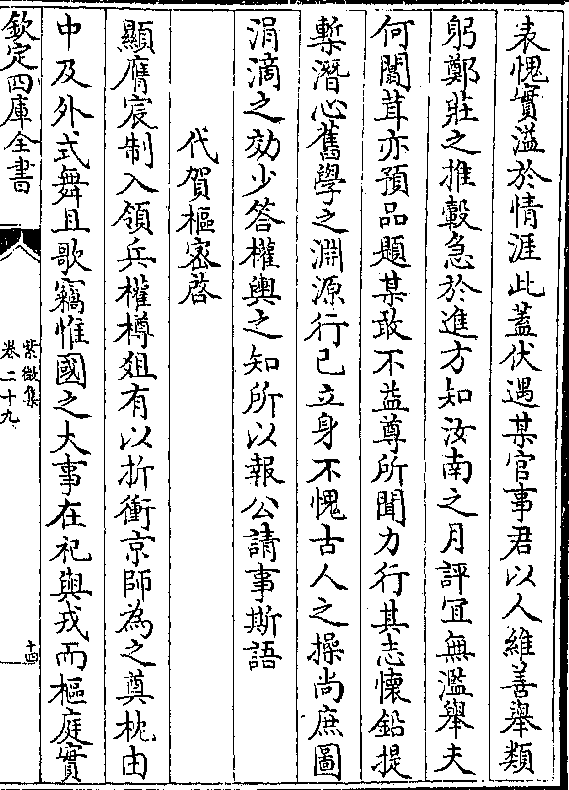 表愧實溢於情涯此蓋伏遇某官事君以人維善舉類
躬鄭莊之推轂急於進方知汝南之月評冝無濫舉夫
何闒茸亦預品題某敢不益尊所聞力行其志懷鉛提
槧潛心舊學之淵源行己立身不愧古人之操尚庶圖
涓滴之効少答權輿之知所以報公請事斯語
代賀樞密啓
顯膺宸制入領兵權樽俎有以折衝京師為之奠枕由
中及外式舞且歌竊惟國之大事在祀與戎而樞庭實
欽定四庫全書
紫微集
卷二十九
十四